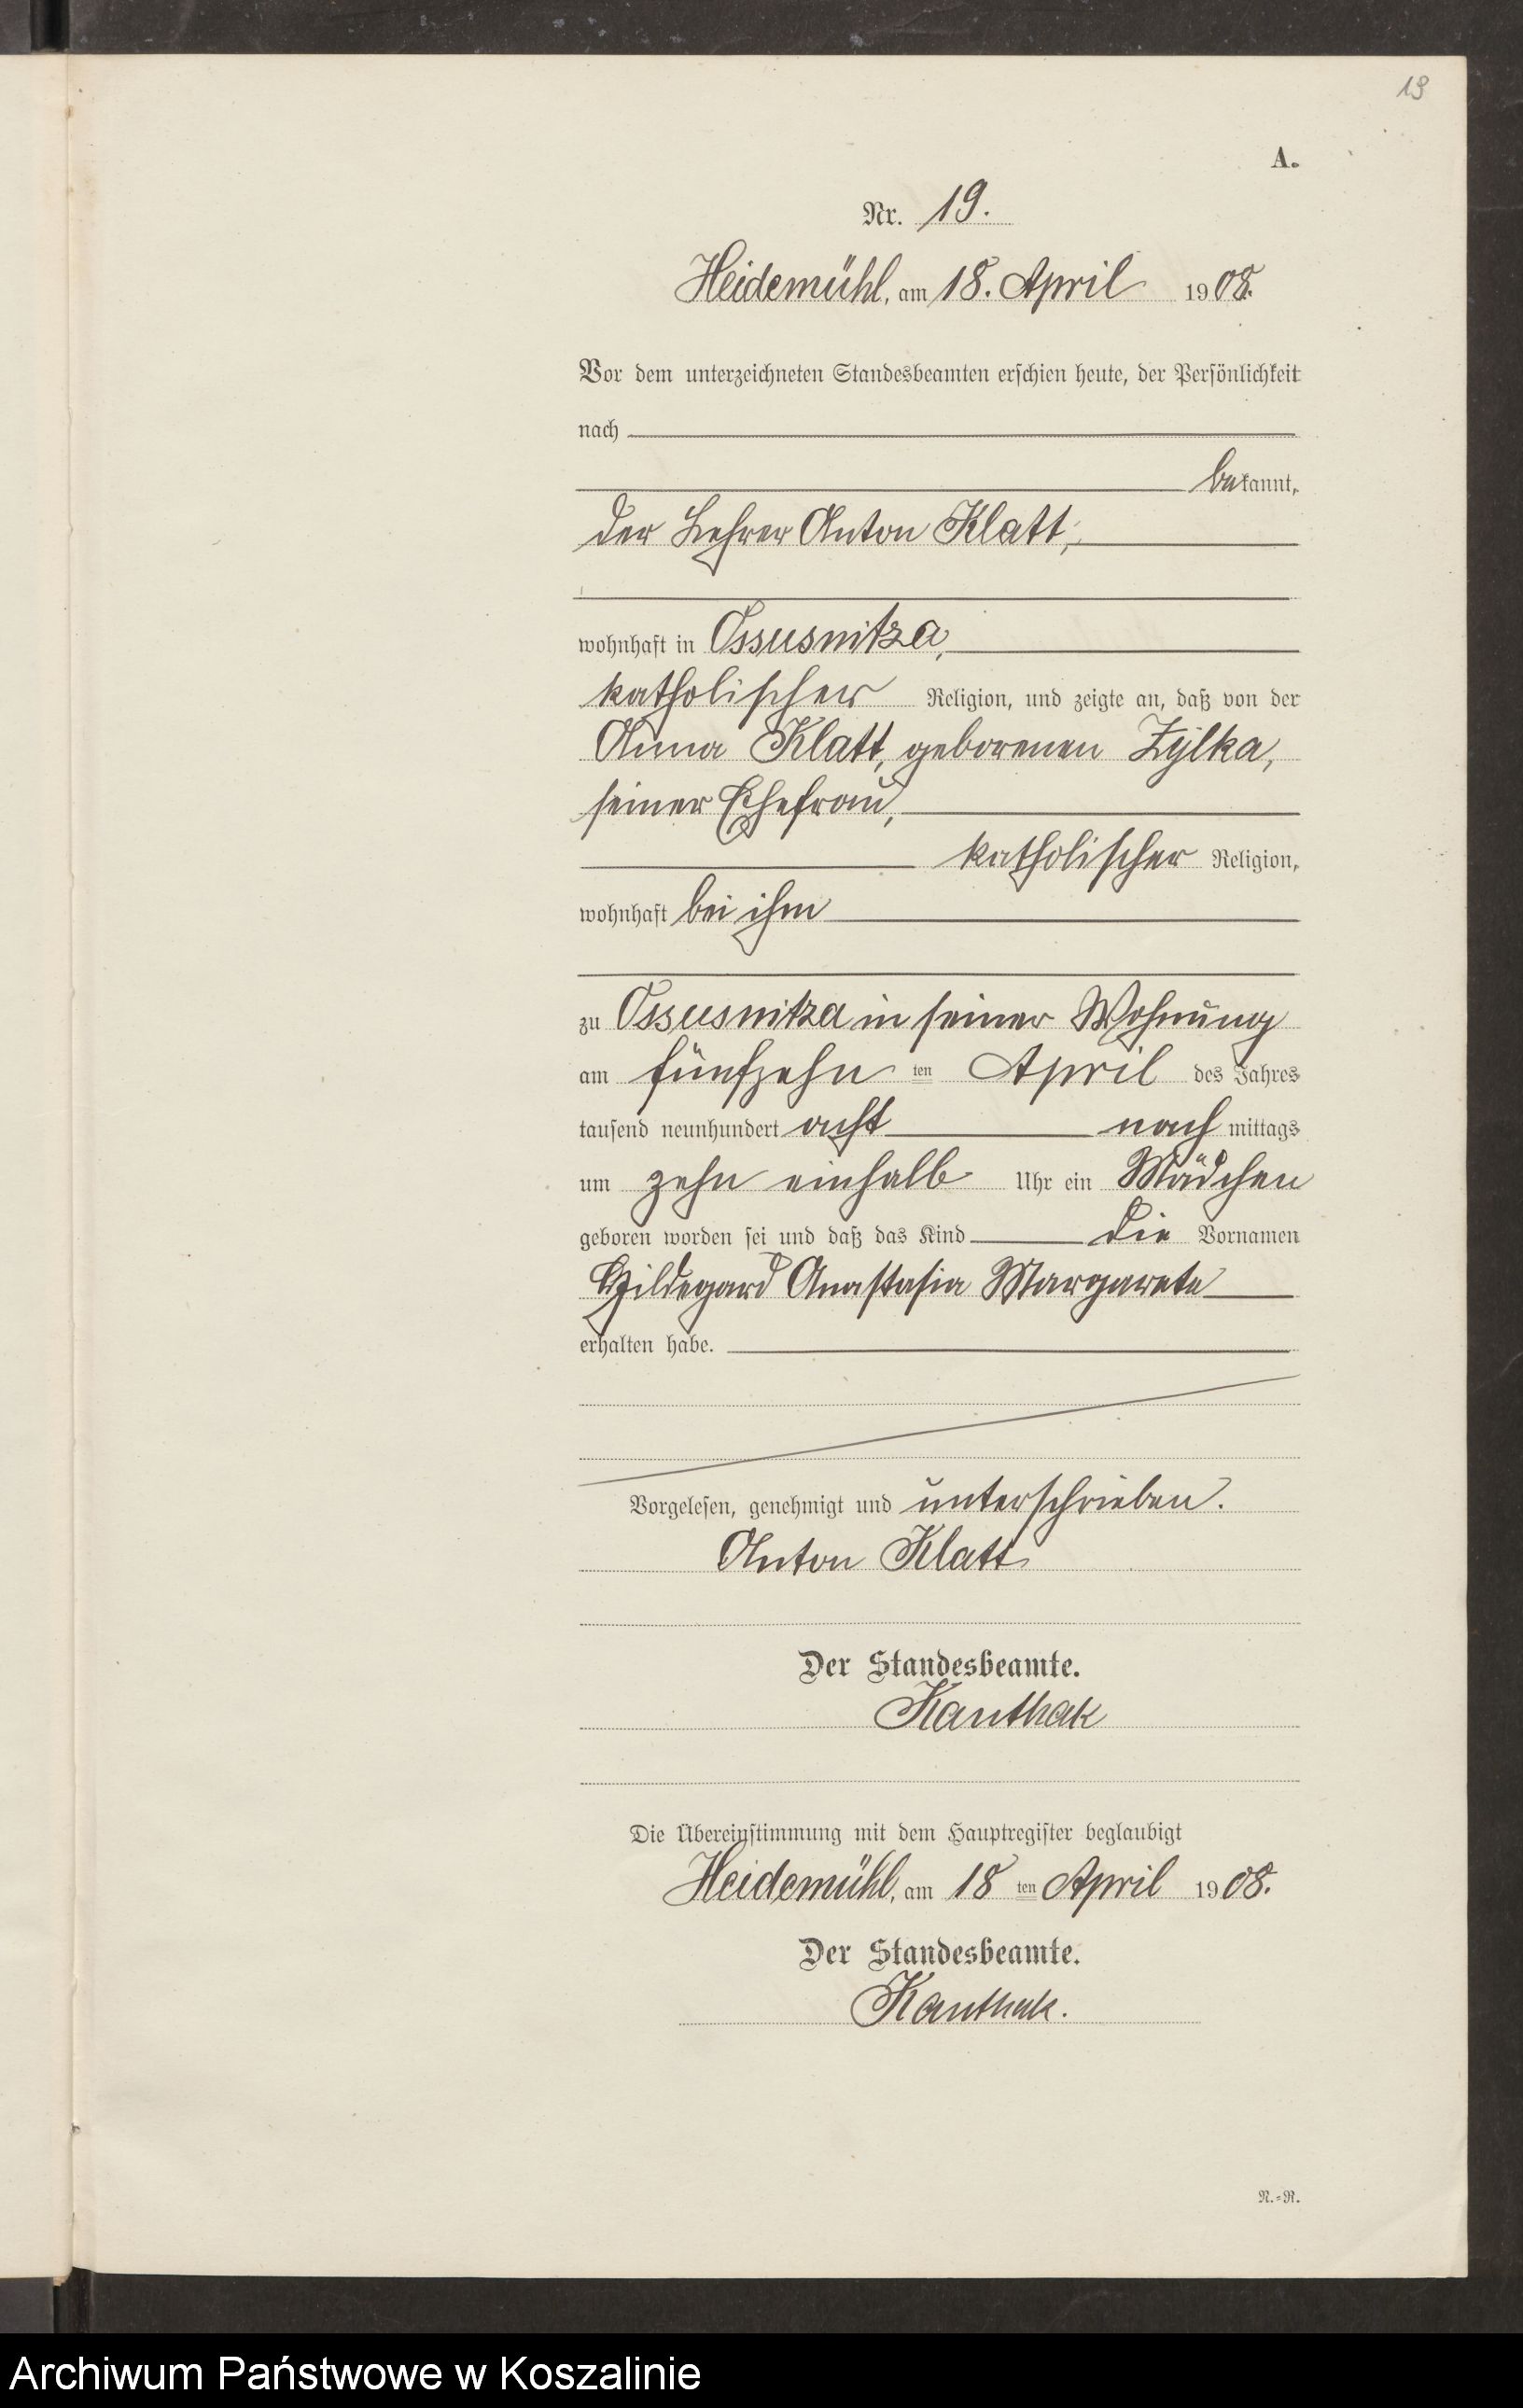 13
A.
Nr. 19.
Heidemühl, am 18. April 1908.
Vor dem unterzeichneten Standesbeamten erschien heute, der Persönlichkeit
nach
bekannt,
der Lehrer Anton Klatt,
wohnhaft in Ossusnitza,
katholischer Religion, und zeigte an, daß von der
Anna Klatt, geborenen Zylka,
seiner Ehefrau,
katholischer Religion,
wohnhaft bei ihm
zu Ossusnitza in seiner Wohnung
am fünfzehn ten April des Jahres
tausend neunhundert acht nach mittags
um zehn einhalb Uhr ein Mädchen
geboren worden sei und daß das Kind die Vornamen
Hildegard Anastasia Margarete
erhalten habe.
Vorgelesen, genehmigt und unterschrieben.
Anton Klatt
Der Standesbeamte.
Kanthak
Die Übereinstimmung mit dem Hauptregister beglaubigt
Heidemühl, am 18 ten April 1908.
Der Standesbeamte.
Kanthak.
N.=R.
Archiwum Państwowe w Koszalinie